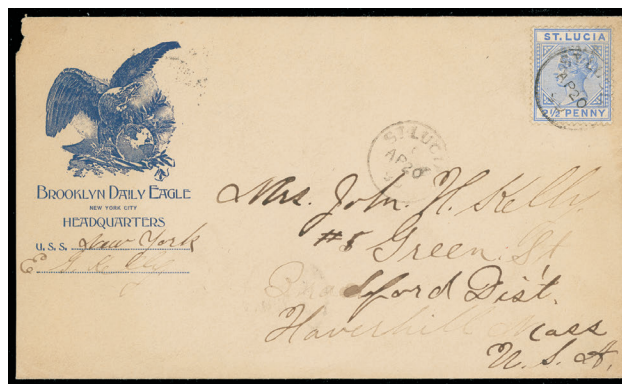 ST. LUCIA
ST. LU
AP 20
2½ PENNY
ST. LUCIA
AP 20
BROOKLYN DAILY EAGLE
NEW YORK CITY
HEADQUARTERS
U. S. S. New York
Mrs. John H. Kelly
#5 Green St
Bradford Dist.
Haverhill Mass
U. S. A.